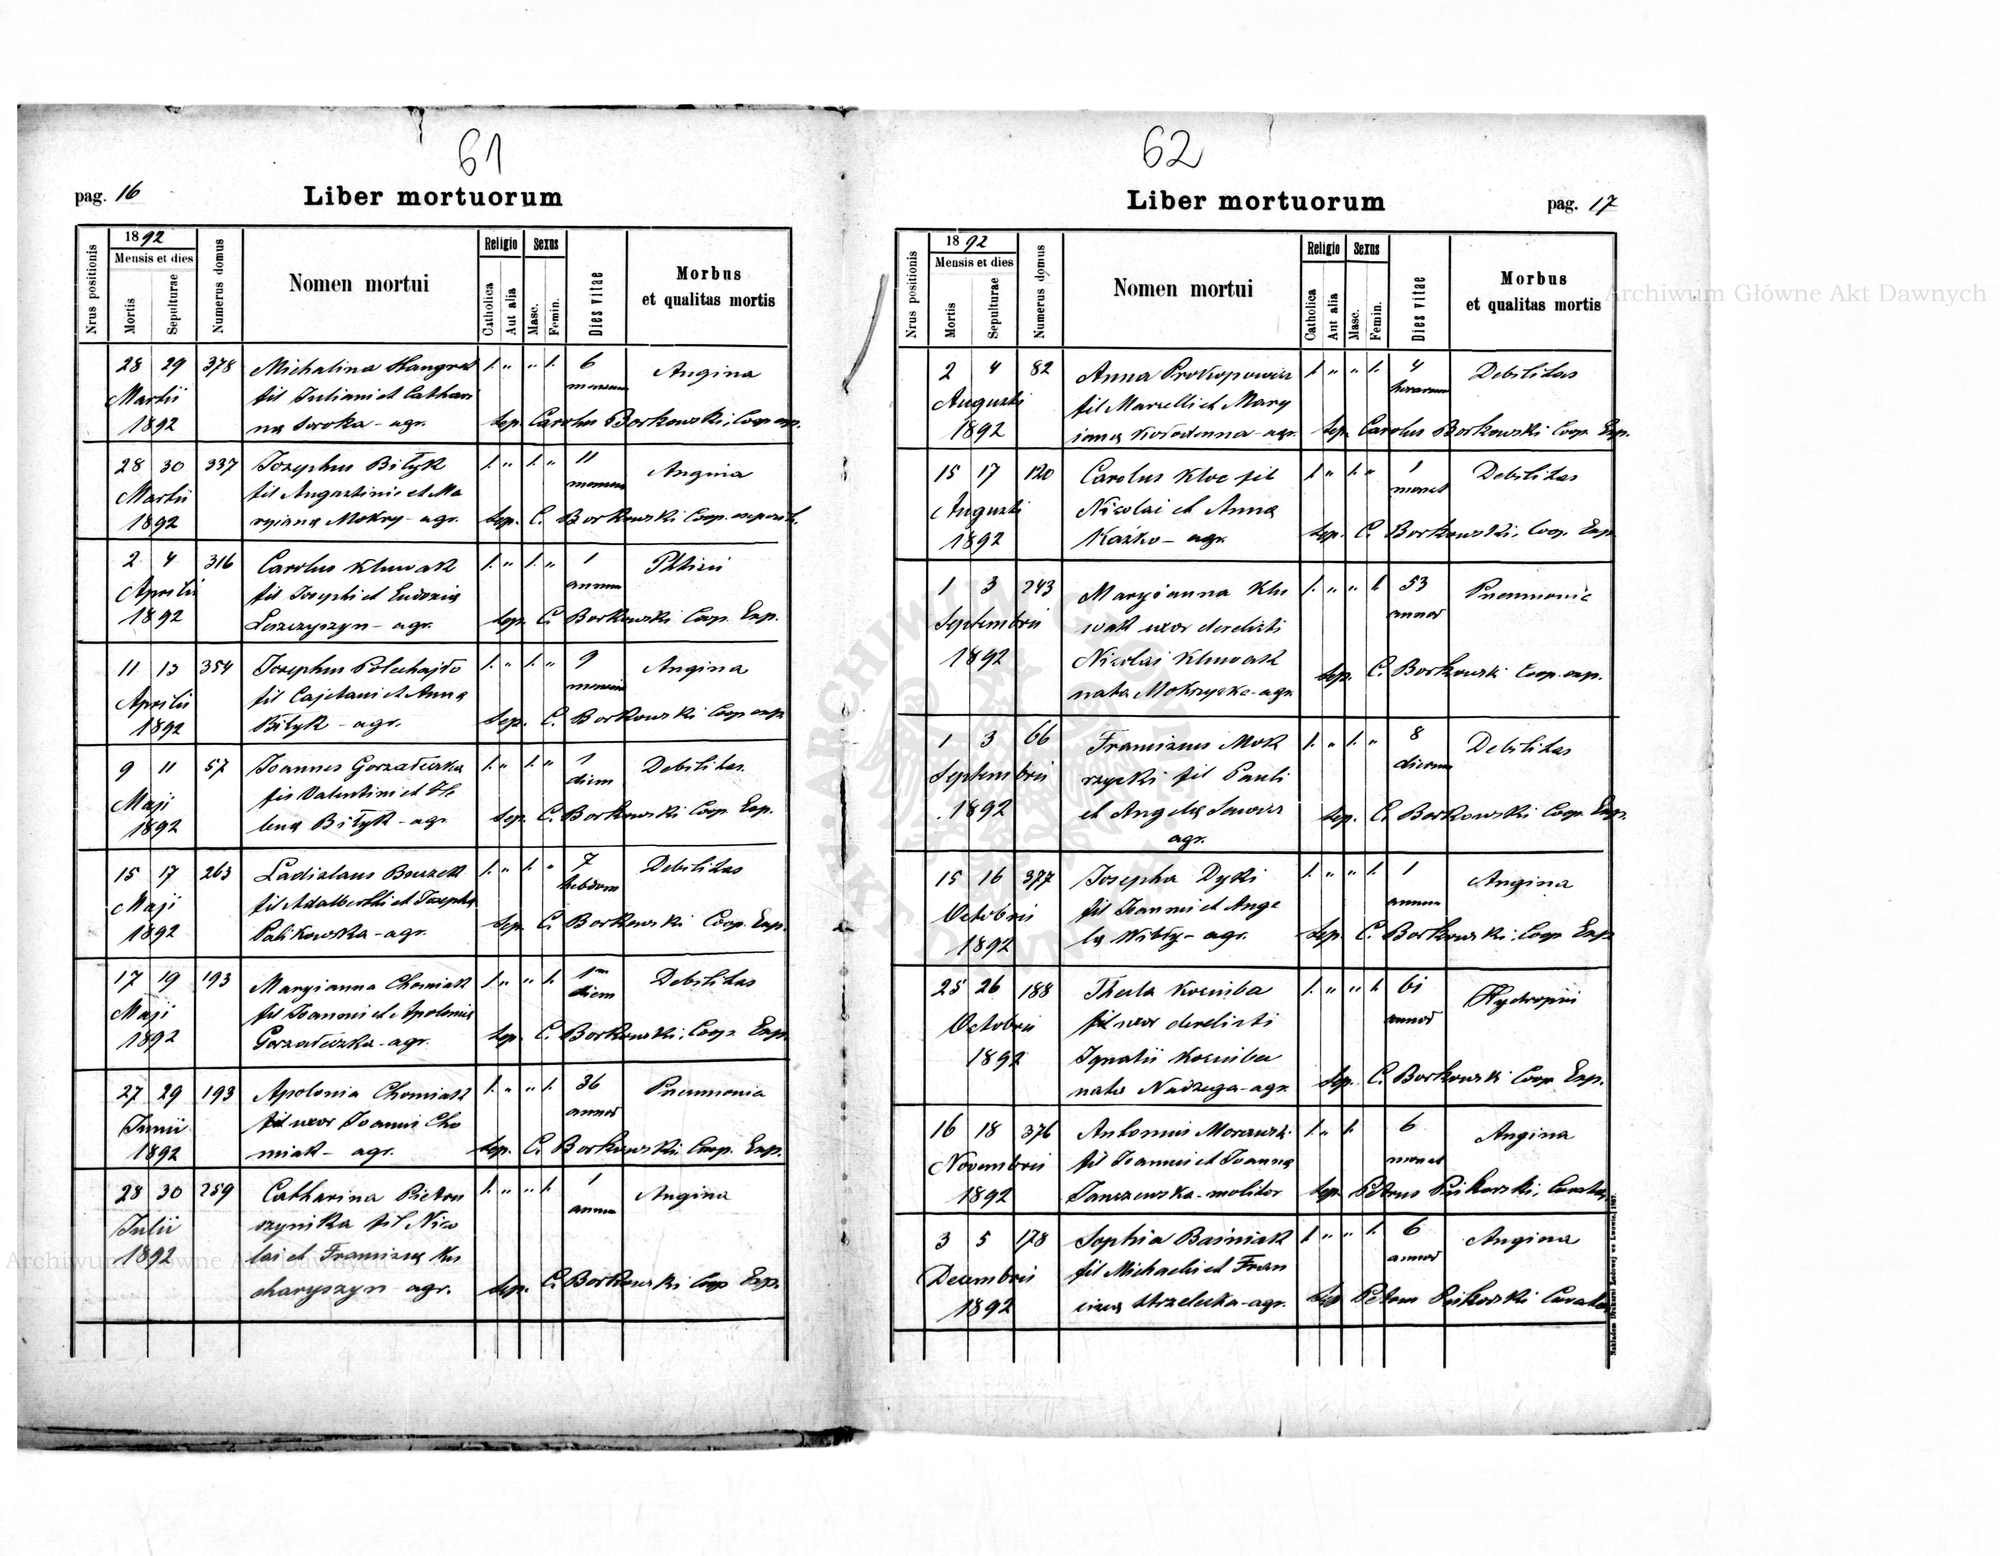 61
pag. 16
Liber mortuorum
Nrus positionis
1892
Mensis et dies
Mortis
Sepulturae
Numerus domus
Nomen mortui
Religio
Catholica
Aut alia
Sexus
Masc.
Femin.
Dies vitae
Morbus
et qualitas mortis
28 29 378 Michalina 1. " " 1. 6 Angina
Martii fil Juliani et Cathari mensium
1892 na Soroka - agr. Sep. Carolus Borkowski, Coop. exp.
28 30 337 Josephus Bityk 1. " 1. " 11 Angina
Martii fil Augustini et Ma mensium
1892 ryianna Mokry - agr. Sep. C. Borkowski Coop.
2 4 316 Carolus Kluwak 1. " 1. " 1 Phtisii
Aprilis fil Josephi et Eudoxia annum
1892 Leszczyszyn - agr. Sep. C. Borkowski Coop. Exp.
11 13 354 Josephus 1. " 1. " 9 Angina
Aprilii fil Cajetani et Anna mensium
1892 Bityk - agr. Sep. C. Borkowski Coop exp
9 11 57 Joannes Gorzałeczka 1. " 1. " 1 Debilitas.
Maji fil Valentini et He diem
1892 lena Bityk - agr. Sep. C. Borkowski Coop. Exp.
15 17 263 Ladislaus 1. " 1. " 7 Debilitas
Maji fil Adalberti et Josepha hebdom
1892 Palikowska - agr. Sep. C. Borkowski Coop. Exp.
17 19 193 Maryianna Chomiak 1. " " 1. 1 Debilitas
Maji fil Joannis et Apolonia diem
1892 Gorzałeczka - agr. Sep. C. Borkowski, Coop. Exp.
27 29 193 Apolonia Chomiak 1. " " 1. 36 Pneumonia
Junii uxor Joannis Cho annos
1892 miak - agr. Sep. C. Borkowski Coop. Exp.
28 30 259 Catharina Pietru 1. " " 1. 1 Angina
Julii szynska fil Nico annum
1892 lai et Francisca Ku
charyszyn agr. Sep. C. Borkowski Coop Exp.
62
Liber mortuorum
pag. 17
Nrus positionis
1892
Mensis et dies
Mortis
Sepulturae
Numerus domus
Nomen mortui
Religio
Catholica
Aut alia
Sexus
Masc.
Femin.
Dies vitae
Morbus
et qualitas mortis
2 4 82 Anna Prokopowicz 1. " " 1. 4 Debilitas
Augusti fil Marcelli et Mary horarum
1892 ianna - agr. Sep. Carolus Borkowski Coop. Exp.
15 17 120 Carolus Kloc fil 1. " 1. " 1 Debilitas
Augusti Nicolai et Anna
1892 Kaźko - agr. Sep. C. Borkowski, Coop. Exp
1 3 243 Maryianna Klu 1. " " 1. 53 Pneumonia
Septembris wak uxor derelicti annos
1892 Nicolai Kluwak
nata Mokrzycka - agr. Sep. C. Borkowski Coop. exp.
1 3 66 Franciscus Mok 1. " 1. " 8 Debilitas
Septembris rzycki fil Pauli dierum
1892 et Angela Sep. C. Borkowski Coop. Exp
agr.
15 16 377 Josepha Dyki 1. " " 1. 1 Angina
Octobris fil Joannis et Ange annum
1892 la - agr. Sep. C. Borkowski, Coop Exp
25 26 188 Thecla Kociuba 1. " " 1. 61 Hydropsii
Octobris uxor derelicti annos
1892 Ignatii Kociuba
nata - agr. Sep. C. Borkowski Coop. Exp.
16 18 376 Antonius 1. " 1. 6 Angina
Novembris fil Joannis et Joanna
1892 Janczewska - molitor Sep. Petrus Curatus
3 5 178 Sophia Baśniak 1. " " 1. 6 Angina
Decembris fil Michaelis et Fran annos
1892 cisca Strzelecka - agr. Sep Petrus Curatus
Archiwum Główne Akt Dawnych
Archiwum Główne Akt Dawnych